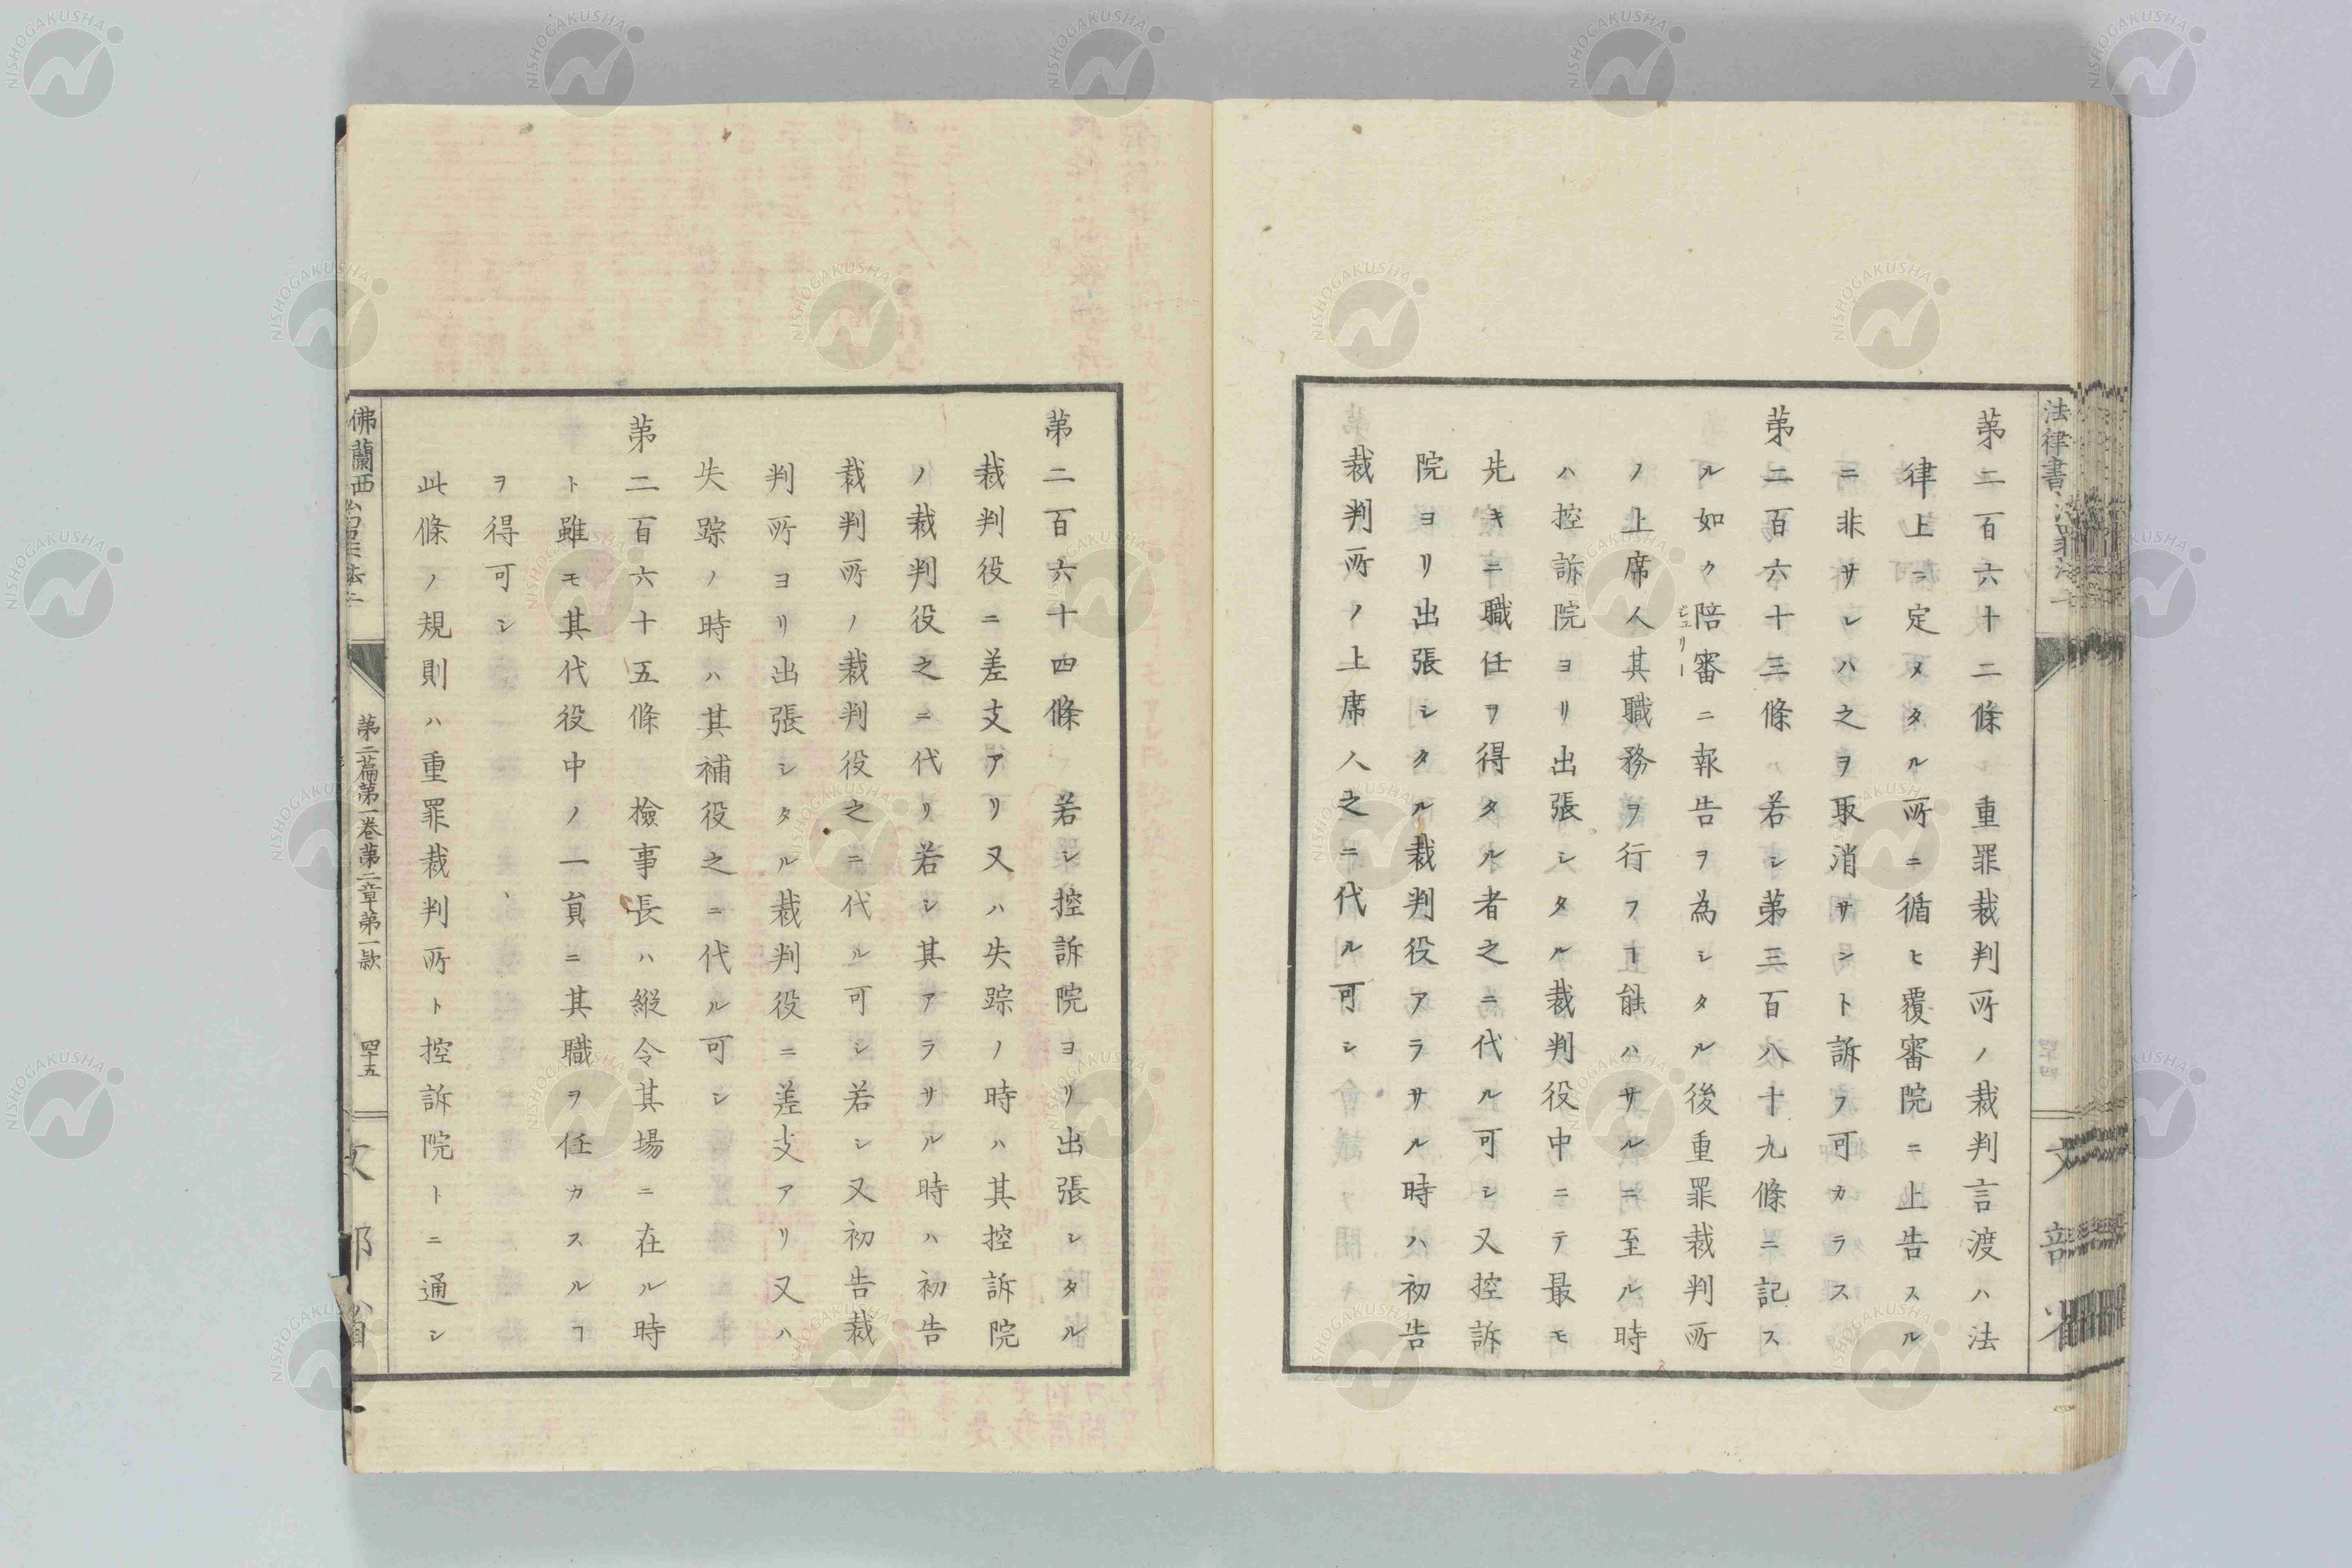 第二百六十二條 重罪裁判所ノ裁判言渡ハ法
律上ニ定メタル所ニ循ヒ覆審院ニ上告スル
ニ非サレハ之ヲ取消サント訴フ可カラス
第二百六十三條 若シ第三百八十九條ニ記ス
ル如ク陪審ニ報告ヲ為シタル後重罪裁判所
ジュリー
ノ上席人其職務ヲ行フヿ能ハサルニ至ル時
ハ控訴院ヨリ出張シタル裁判役中ニテ最モ
先キニ職任ヲ得タル者之ニ代ル可シ又控訴
院ヨリ出張シタル裁判役アラサル時ハ初告
裁判所ノ上席人之ニ代ル可シ
第二百六十四條 若シ控訴院ヨリ出張シタル
裁判役ニ差支アリ又ハ失踪ノ時ハ其控訴院
ノ裁判役之ニ代リ若シ其アラサル時ハ初告
裁判所ノ裁判役之ニ代ル可シ若シ又初告裁
判所ヨリ出張シタル裁判役ニ差支アリ又ハ
失踪ノ時ハ其補役之ニ代ル可シ
第二百六十五條 檢事長ハ縱令其場ニ在ル時
ト雖モ其代役中ノ一員ニ其職ヲ任カスルヿ
ヲ得可シ
此條ノ規則ハ重罪裁判所ト控訴院トニ通シ
佛蘭西
第二篇第一巻第二章第一款
四十五
文部省
法律書
文部省
NISHOGAKUSHA